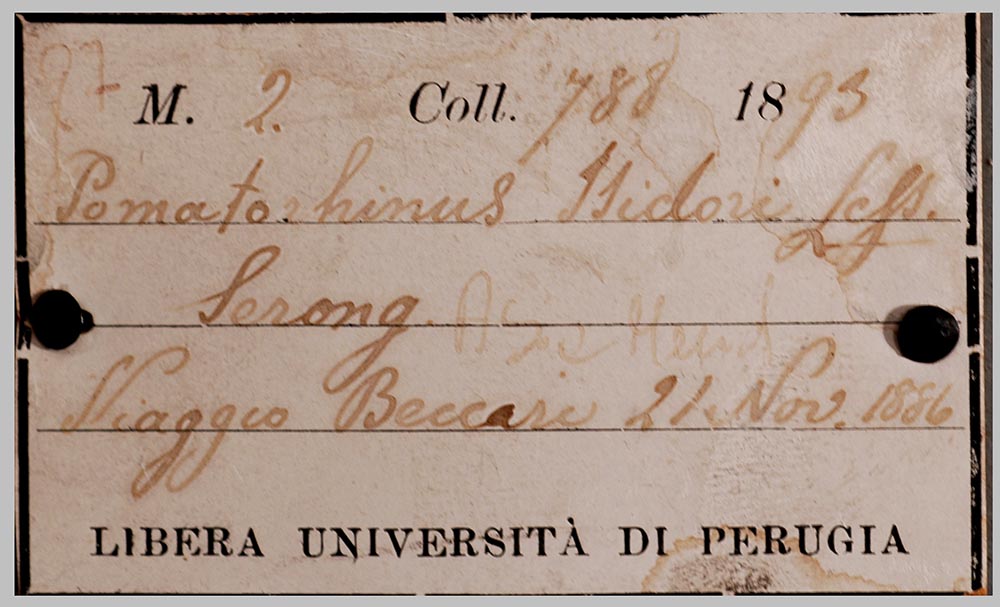 27
M. 2. Coll. 788 1893
Pomatorhinus Isidori Less.
Serong.
Viaggio Beccari 21. Nov. 1886
LIBERA UNIVERSITÀ DI PERUGIA